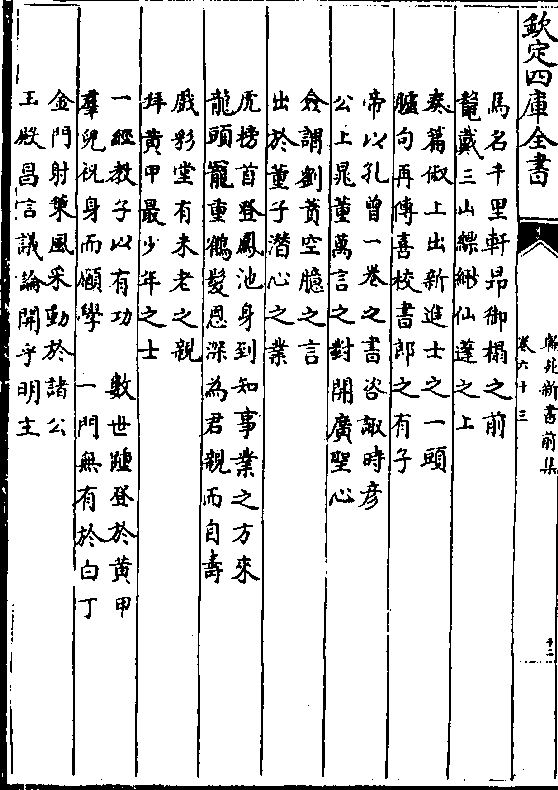 欽定四庫全書
翰苑新書前集
卷六十三
十二
馬名千里軒昂御榻之前
鼇戴三山縹緲仙蓬之上
奏篇俶上出新進士之一頭
臚句再傳喜校書郎之有子
帝以孔曾一卷之書咨諏時彥
公上晁董萬言之對開廣聖心
僉謂劉蕡空臆之言
出於董子潛心之業
虎榜首登鳳池身到知事業之方來
龍頭寵重鶴髮恩深為君親而自壽
戲彩堂有未老之親
拜黃甲最少年之士
一經教子以有功　數世踵登於黃甲
羣兒祝身而願學　一門無有於白丁
金門射策風采動於諸公
玉殿昌言議論開乎明主